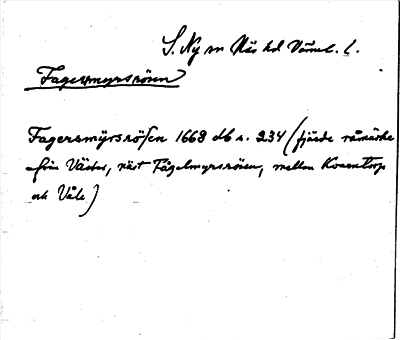 S. Ny sn Näs hd Värml. l.
Fagersmyrsrösen
Fagersmÿrsrösen 1668 db s. 234 (fjärde råmärke
från Väster, näst Fågelmyrsrösen, mellan Konentorp
och Våle)